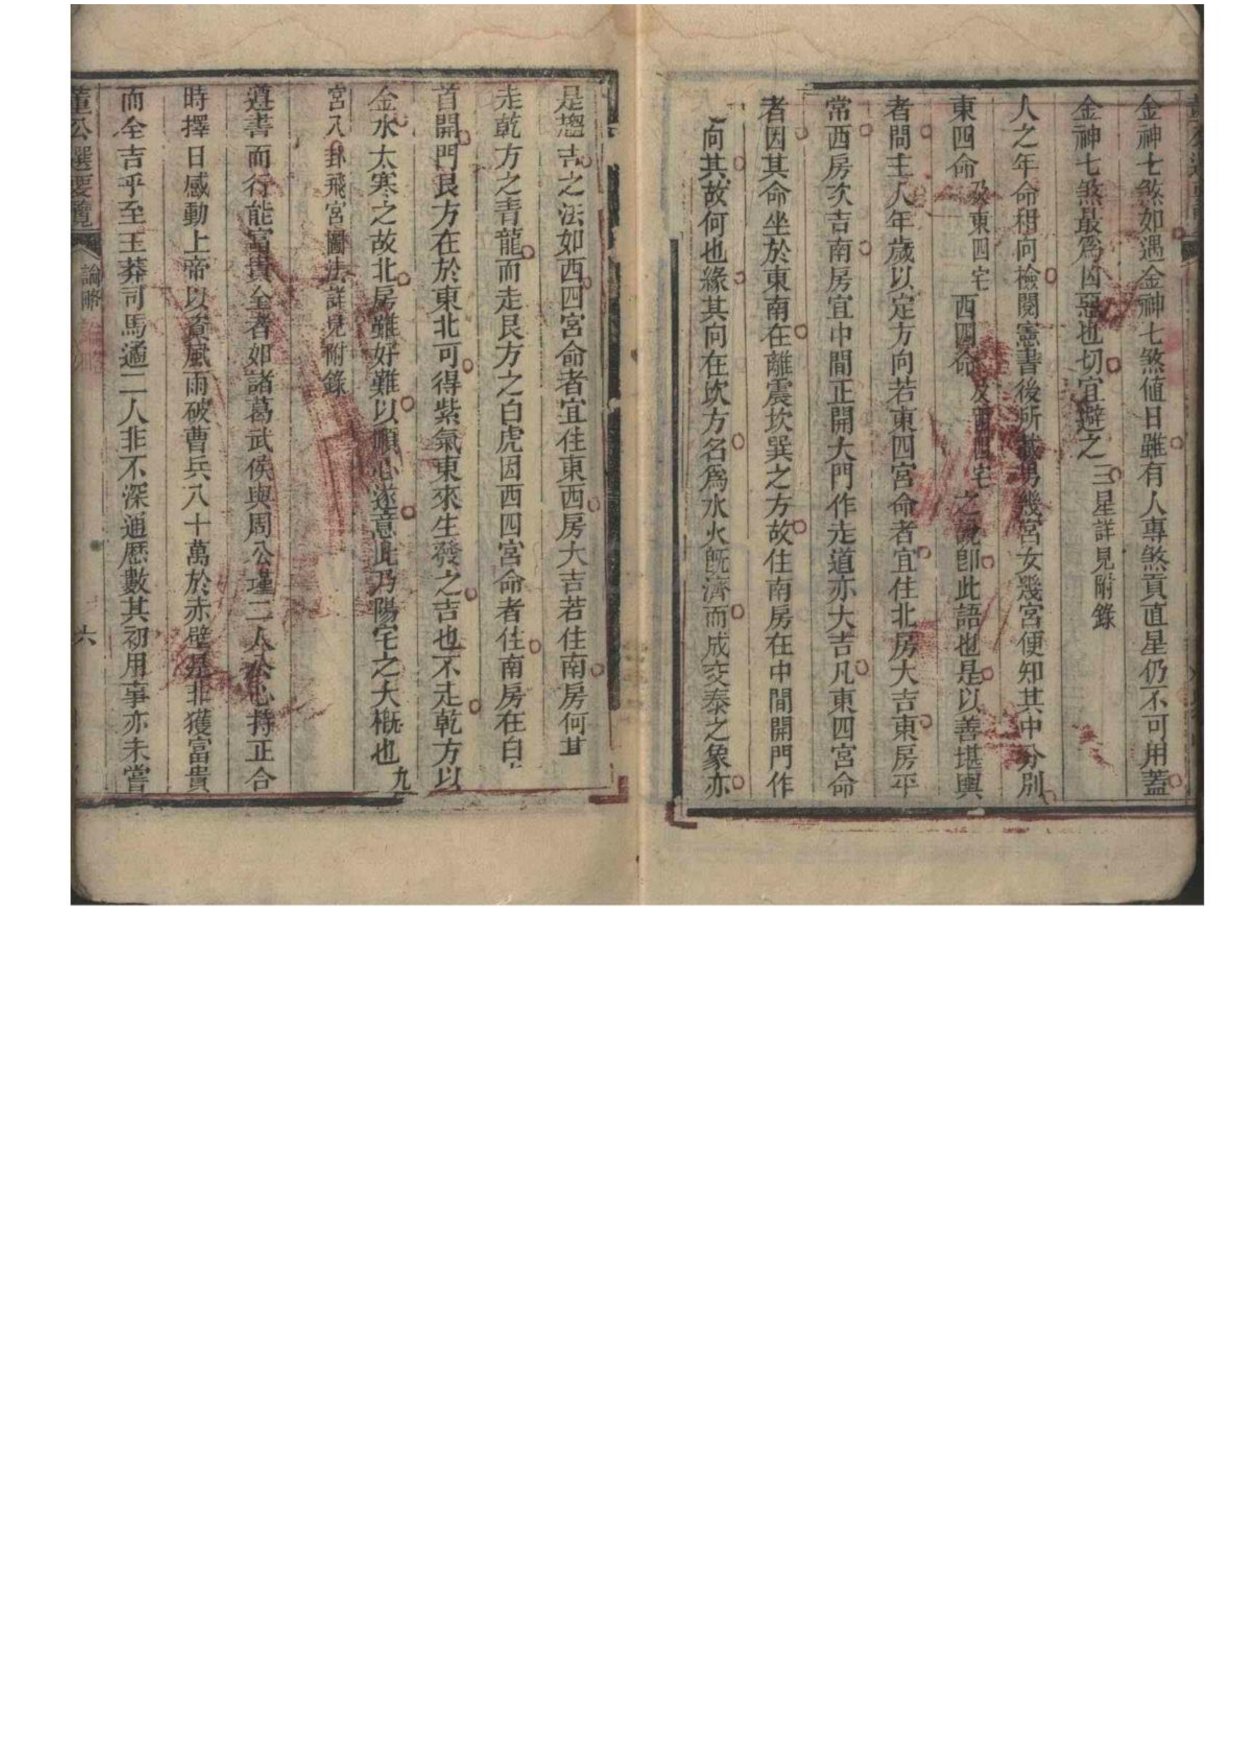 金神七煞如遇金神七煞値日雖有人專煞貢直星仍不可用蓋
金神七煞最爲凶惡也切宜避之三星詳見附錄
人之年命相向檢閱憲書後所載男幾宮女幾宮便知其中分別
東四命及東四宅西四命及西四宅之說卽此語也是以善堪輿
者問主人年歲以定方向若東四宮命者宜住北房大吉東房平
常西房次吉南房宜中間正開大門作走道亦大吉凡東四宮命
者因其命坐於東南在離震坎巽之方故住南房在中間開門作
向其故何也緣其向在坎方名爲水火旣濟而成交泰之象亦
是趨吉之法如西四宮命者宜住東西房大吉若住南房何
走乾方之青龍而走艮方之白虎因西四宮命者住南房在白
首開門艮方在於東北可得紫氣東來生發之吉也不走乾方以
金水太寒之故北房雖好難以順心遂意此乃陽宅之大槪也九
宮八卦飛宮圖法詳見附錄
遵書而行能富貴全者如諸葛武侯與周公瑾二人公心持正合
時擇日感動上帝以資風雨破曹兵八十萬於赤壁是非獲富貴
而全吉乎至王莽司馬遹二人非不深通歷數其初用事亦未嘗
董公選要覽
論略
六